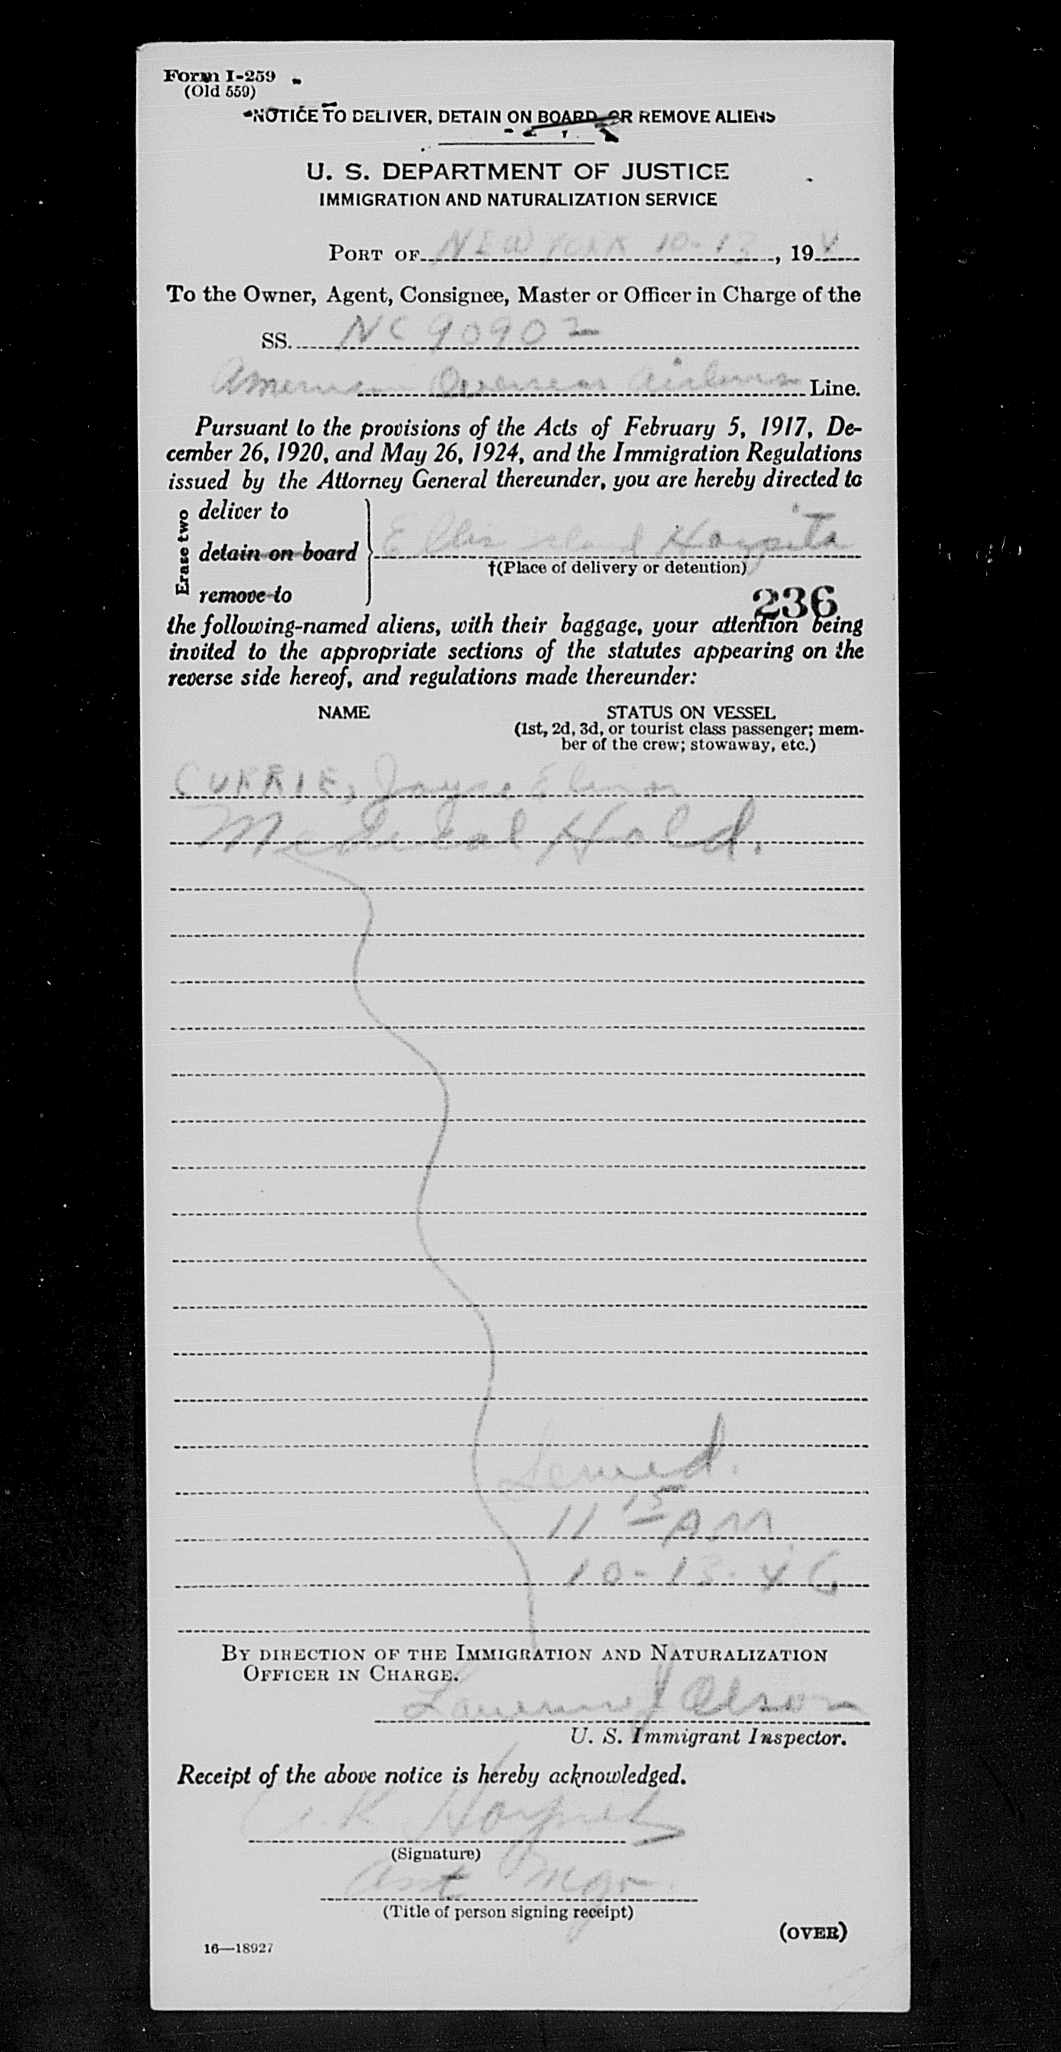 Form I-259
(Old 559)
NOTICE TO DELIVER, DETAIN ON BOARD, OR REMOVE ALIENS
U. S. DEPARTMENT OF JUSTICE
IMMIGRATION AND NATURALIZATION SERVICE
PORT OF NEW YORK 10-13, 194
To the Owner, Agent, Consignee, Master or Officer in Charge of the
SS. NC 90902
American Overseas Airlines Line.
Pursuant to the provisions of the Acts of February 5, 1917, De-
cember 26, 1920, and May 26, 1924, and the Immigration Regulations
issued by the Attorney General thereunder, you are hereby directed to
Erase two
deliver to
detain on board Ellis Island Hospital
remove to
†(Place of delivery or detention)
236
the following-named aliens, with their baggage, your attention being
invited to the appropriate sections of the statutes appearing on the
reverse side hereof, and regulations made thereunder:
NAME STATUS ON VESSEL
(1st, 2d, 3d, or tourist class passenger; mem-
ber of the crew; stowaway, etc.)
CURRIE, Joyce Elinor
Medical Hold.
Served.
11 15 AM
10-13-46
BY DIRECTION OF THE IMMIGRATION AND NATURALIZATION
OFFICER IN CHARGE.
J Olson
U. S. Immigrant Inspector.
Receipt of the above notice is hereby acknowledged.
(Signature)
Asst Mgr.
(Title of person signing receipt)
(OVER)
16—18927